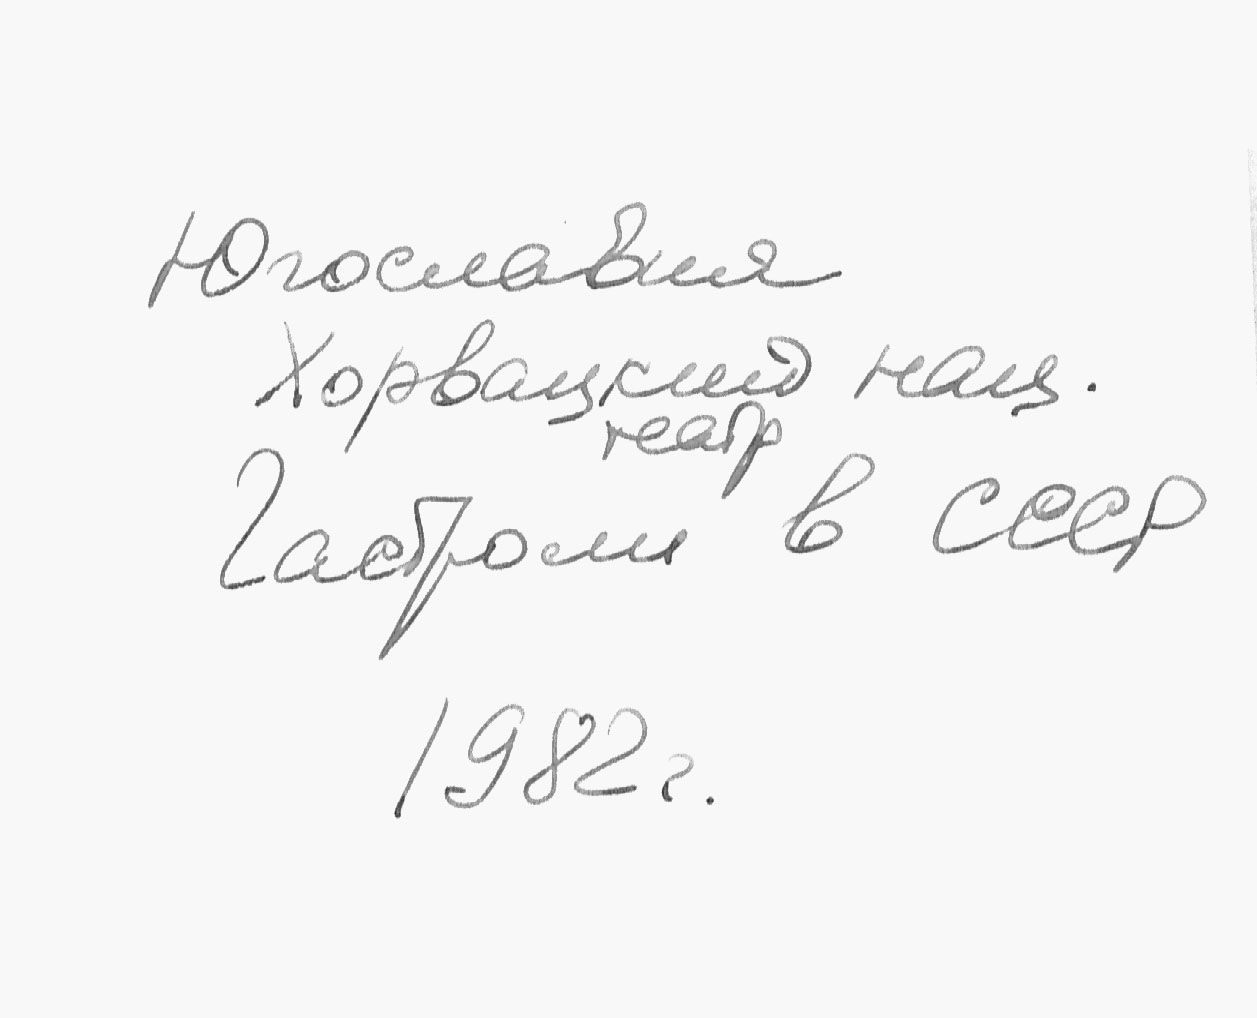 Югославия
Хорвацкий нац.
театр
Гастроли в СССР
1982 г.